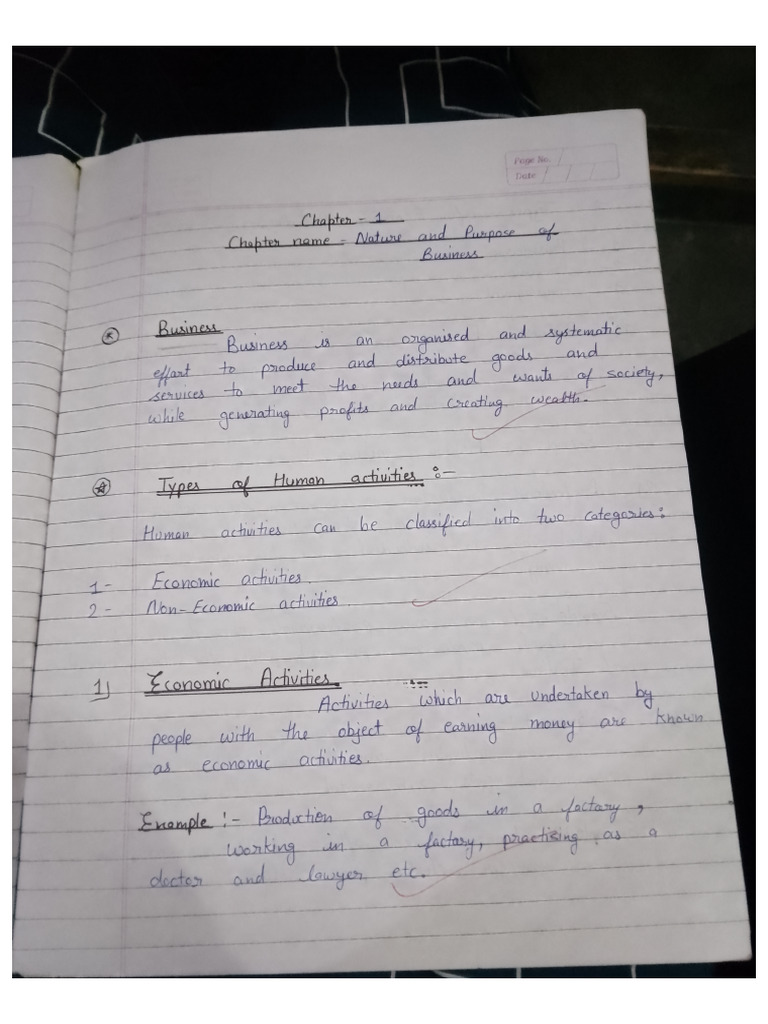 Page No.
Date / / /
Chapter - 1
Chapter name - Nature and Purpose of
Business
Business
Business is an organised and systematic
effort to produce and distribute goods and
services to meet the needs and wants of society,
while generating profits and creating wealth.
Types of Human activities :-
Human activities can be classified into two categories:
1 - Economic activities.
2 - Non-Economic activities.
1) Economic Activities :-
Activities which are undertaken by
people with the object of earning money are known
as economic activities.
Example :- Production of goods in a factory,
working in a factory, practising as a
doctor and lawyer etc.